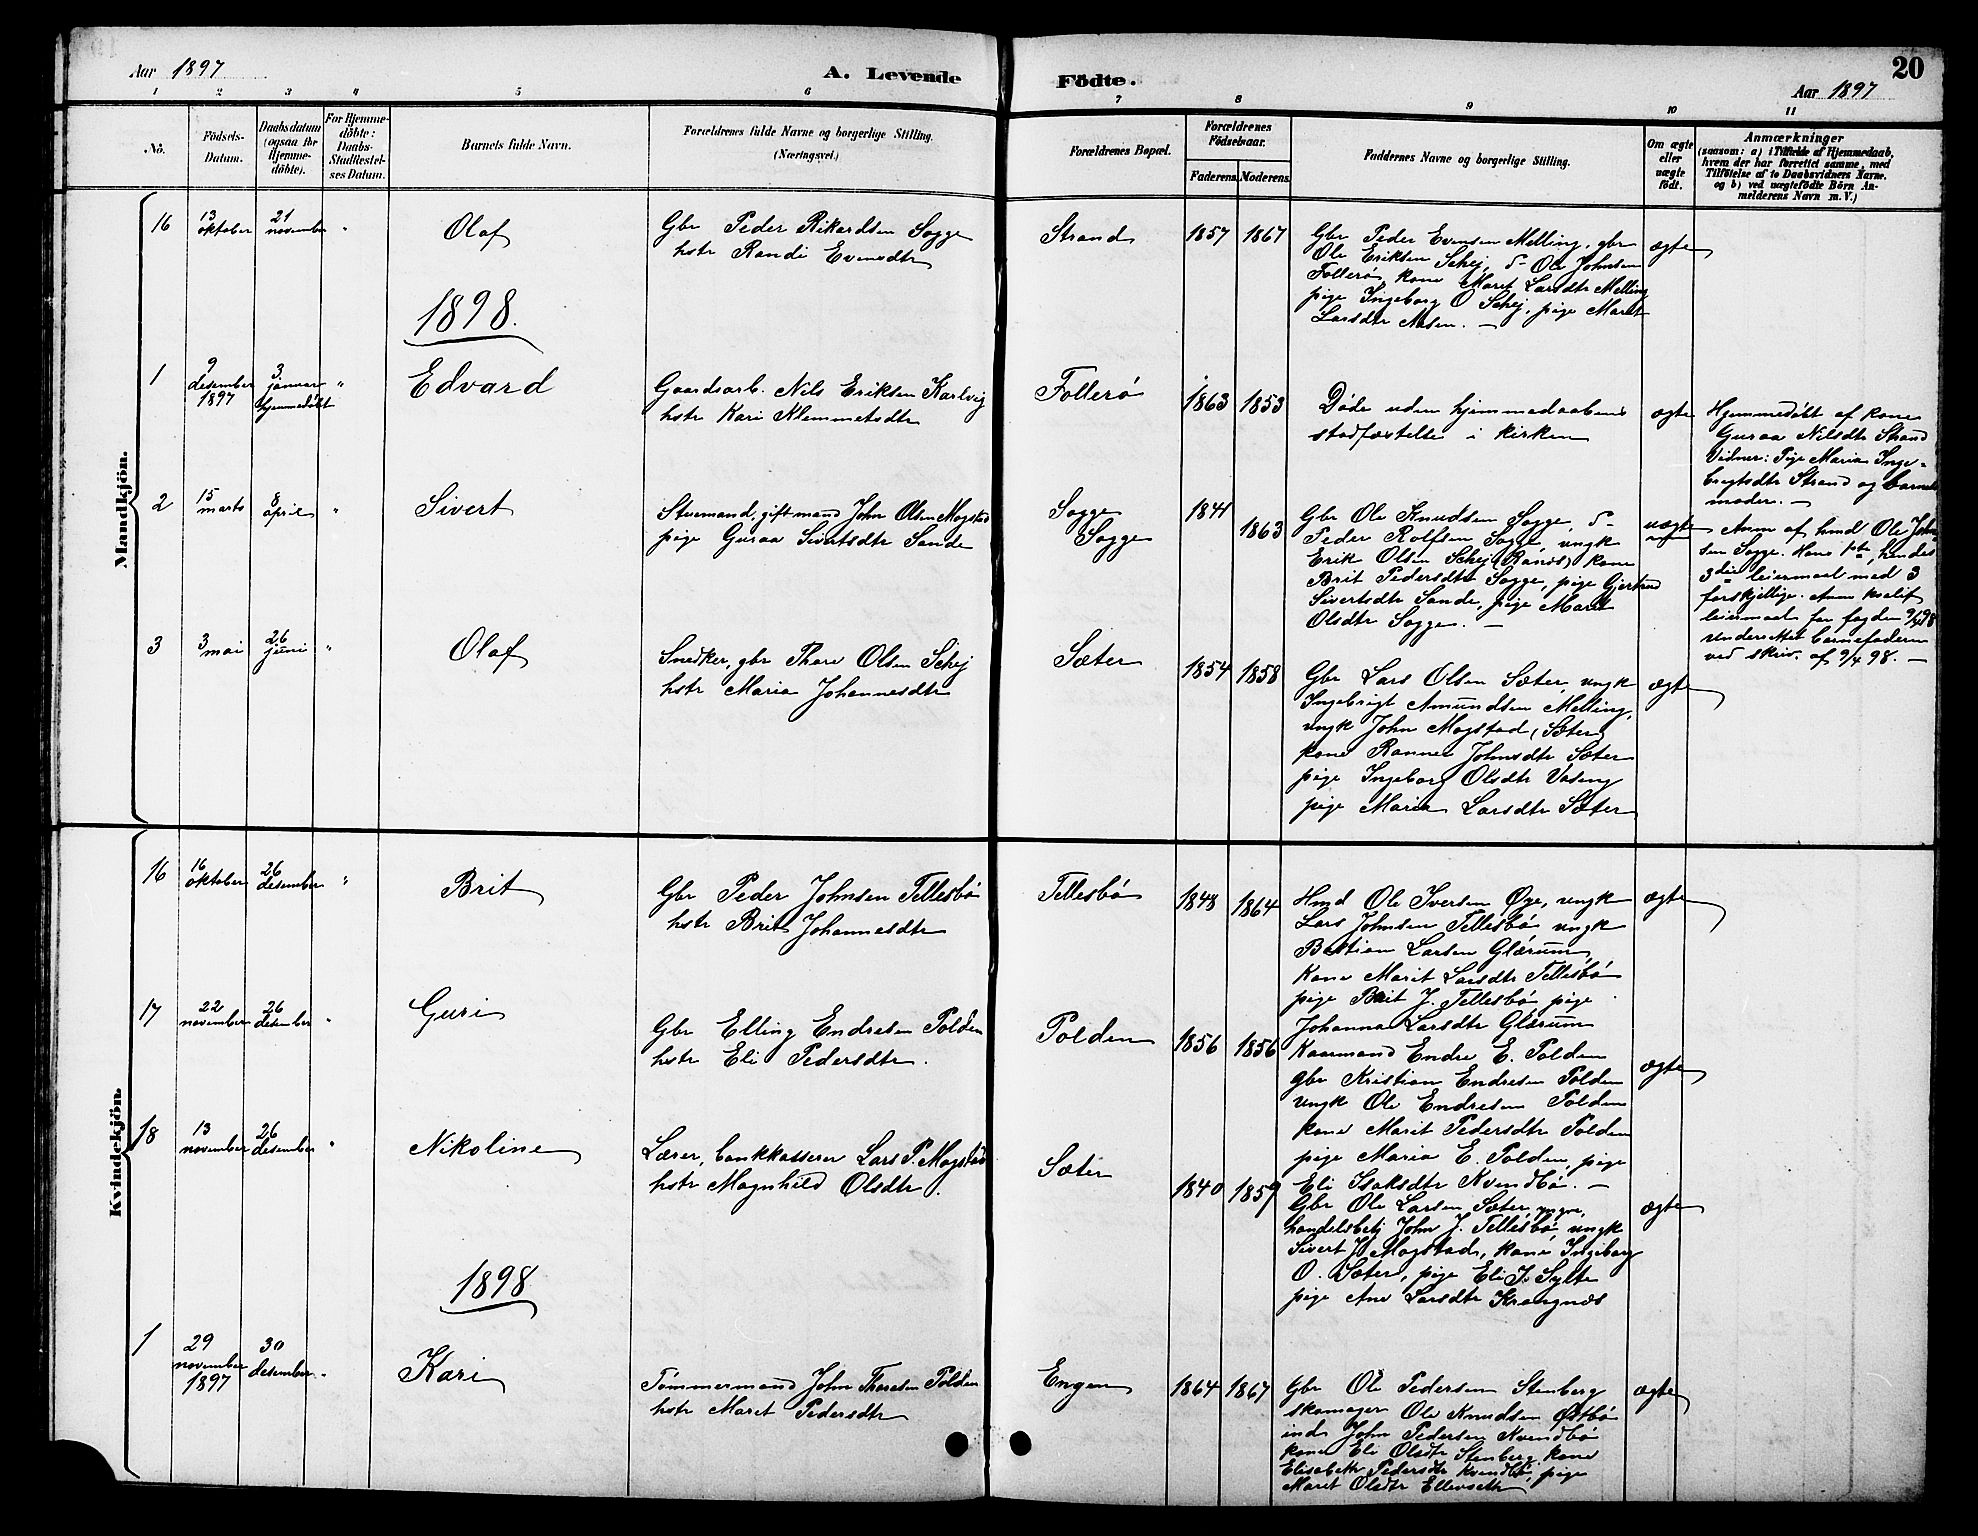 Aar 1897
A. Levende
Födte.
Aar 1897
20
1 2 3 4 5 6 7 8 9 10 11
No.
Födsels-
Datum.
Daabsdatum
(ogsaa for
Hjemme-
döbte).
For Hjemme-
döbte:
Daabs-
Stadfæstel-
ses Datum.
Barnets fulde Navn.
Forældrenes fulde Navne og borgerlige Stilling.
(Næringsvei.)
Forældrenes Bopæl.
Forældrenes
Födselsaar.
Faderens. Moderens.
Faddernes Navne og borgerlige Stilling.
Om ægte
eller
uægte
født.
Anmærkninger
(saasom: a) i Tilfælde af Hjemmedaab,
hvem der har forrettet samme, med
Tilföielse af to Daabsvidners Navne.
og b) ved uægtefödte Börn An-
melderens Navn m. V.)
Mandkjön.
16
13
oktober
21
november
"
Olaf
Gbr Peder Rikardsen Sogge
hstr Randi Evensdtr
Strand
1857 1867
Gbr Peder Evensen Melling, gbr
Ole Eriksen Schej, do Ole Johnsen
Follerö, kone Maret Larsdtr Melling
pige Ingeborg O Schej, pige Maret
Larsdtr Mosen. –
ægte
1898.
1
9
desember
1897
3
januar
hjemmedöbt
"
Edvard
Gaardsarb. Nils Eriksen Karlvig
hstr Kari Klemmetsdtr
Follerö
1863 1853
Döde uden hjemmedaabens
stadfæstelse i kirken
ægte
Hjemmedöbt af kone
Guraa Nilsdtr Strand
Vidner: Pige Maria Inge-
brigtsdtr Strand og barnets
moder. –
2
15
marts
8
april
"
Sivert
Styrmand, gift mand John Olsen Mogstad
pige Guraa Sivertsdtr Sande
Sogge
Sogge
1841
1863
Gbr Ole Knudsen Sogge, do
Peder Rolfsen Sogge, ungk
Erik Olsen Schej (Ranvs) kone
Brit Pedersdtr Sogge, pige Gjertrud
Sivertsdtr Sande, pige Maret
Olsdtr Sogge. –
uægte
Anm af hmd Ole John
sen Sogge. Hans 1ste, hendes
3die leiermaal med 3
forskjellige. Anm kvalif
leiermaal for fogden 9/4 98
Underettet barnefaderen
ved skriv. af 9/4 98. –
3
3
mai
26
juni
"
Olaf
Snedker, gbr Thore Olsen Schej
hstr Maria Johannesdtr
Sæter
1854 1858
Gbr Lars Olsen Sæter, ungk
Ingebrigt Amundsen Melling,
ungk John Mogstad (Sæter)
kone Rannei Johnsdtr Sæter
pige Ingeborg Olsdtr Vaseng
pige Maria Larsdtr Sæter
ægte
Kvindekjön.
16
16
oktober
26
desember
"
Brit
Gbr Peder Johnsen Tellesbö
hstr Brit Johannesdtr
Tellesbö
1848 1864
Hmd Ole Iversen Öye, ungk
Lars Johnsen Tellesbö ungk
Bastian Larsen Glærum,
Kone Marit Larsdtr Tellesbö
pige Brit J. Tellesbö, pige
Johanna Larsdtr Glærum
ægte
17
22
november
26
desember
"
Guri
Gbr Elling Endresen Polden
hstr Eli Pedersdtr.
Polden
1856 1856
Kaarmand Endre E. Polden
gbr Kristian Endresen Polden
ungk Ole Endresen Polden
kone Marit Pedersdtr Polden
pige Maria E. Polden, pige
Eli Isaksdtr Kvendbö. –
ægte
18
13
november
26
desember
"
Nikoline
Lærer, bankkasserer Lars P. Mogstad
hstr Magnhild Olsdtr.
Sæter
1840 1859
Gbr Ole Larsen Sæter, yngre,
handelsbetj John J. Tellesbö, ungk
Sivert J Mogstad, kone Ingeborg
O. Sæter, pige Eli J. Sylte
pige Ane Larsdtr Krangnæs
ægte
1898
1
29
november
1897
30
desember
"
Kari
Tömmermand John Thoresen Polden
hstr Maret Pedersdtr
Engen
1864 1867
Gbr Ole Pedersen Stenberg
skomager Ole Knudsen Östbö
inds John Pedersen Kvendbö
kone Eli Olsdtr Stenberg, kone
Elisabeth Pedersdtr Kvendbö, pige
Maret Olsdtr Ellevseth
ægte